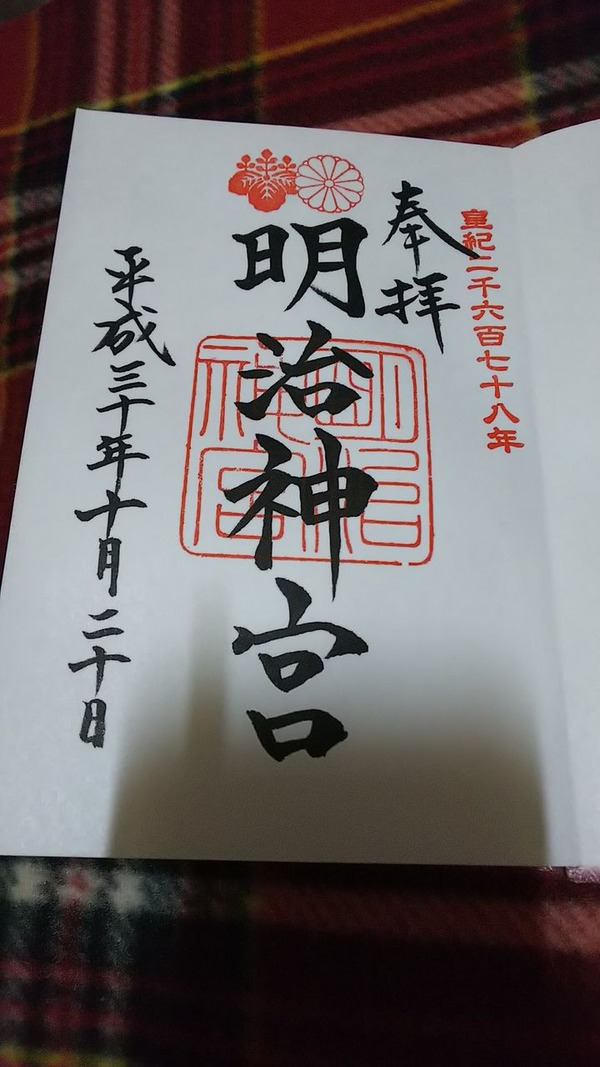 皇紀二千六百七十八年
奉拝
明治神宮
明治神宮
平成三十年十月二十日